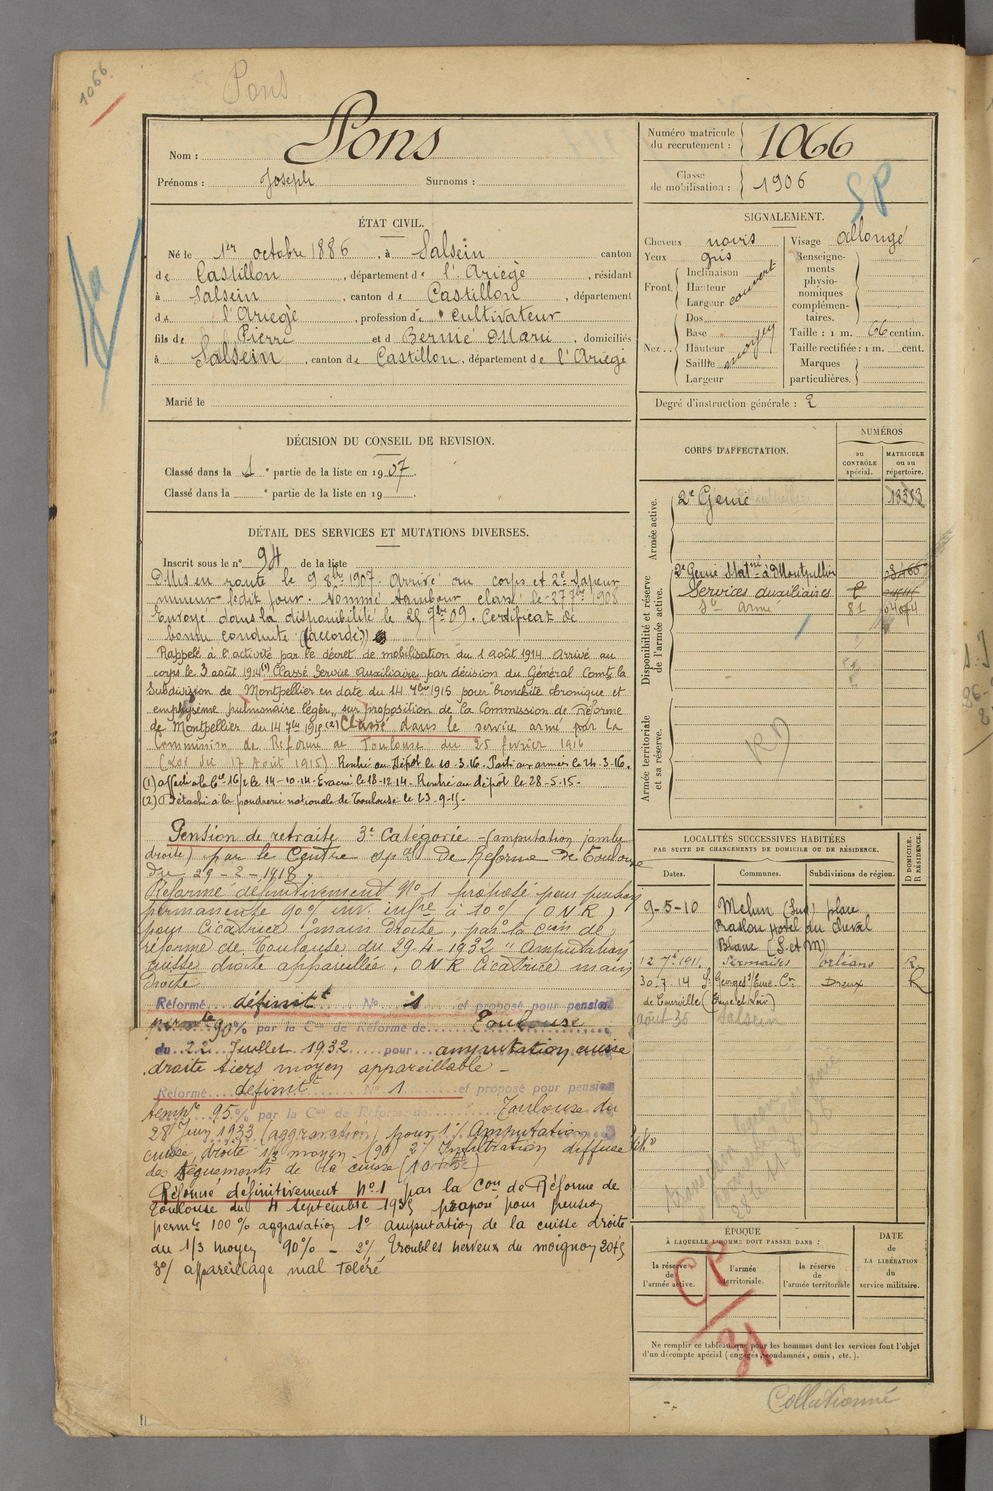 1066
Pons
Nom : Pons
Prénoms : Joseph Surnoms :
Numéro matricule du recrutement : 1066
Classe de mobilisation : 1906
SP
ÉTAT CIVIL.
Né le 1er octobre 1886, à Salsein canton
de Castillon, département de l'Ariège, résidant
à Salsein, canton de Castillon, département
de l'Ariège, profession de cultivateur
fils de Pierre et d Bernié Marie, domiciliés
à Salsein, canton de Castillon, département de l'Ariège
Marié le
SIGNALEMENT.
Cheveux noirs
Yeux gris
Front. Inclinaison
Hauteur
Largeur couvert
Nez.. Dos
Base
Hauteur moyen
Saillie
Largeur
Visage allongé
Renseignements physionomiques complémentaires.
Taille : 1 m. 66 centim.
Taille rectifiée : 1 m. cent.
Marques particulières.
Degré d'instruction générale : 2
DÉCISION DU CONSEIL DE REVISION.
Classé dans la 1e partie de la liste en 1907.
Classé dans la e partie de la liste en 19 .
DÉTAIL DES SERVICES ET MUTATIONS DIVERSES.
Inscrit sous le n° 94 de la liste
Mis en route le 9 8bre 1907. Arrivé au corps et 2e Sapeur
mineur ledit jour. Nommé tambour classé le 27 7bre 1908
Envoyé dans la disponibilité le 28 7bre 09. Certificat de
bonne conduite (accordé)
Rappelé à l'activité par le décret de mobilisation du 1 août 1914. Arrivé au
corps le 3 août 1914 (1) Classé Service Auxiliaire par décision du Général Comt la
Subdivision de Montpellier en date du 14 7bre 1915 pour "bronchite chronique et
emphysème pulmonaire léger" sur proposition de la Commission de Réforme
de Montpellier du 14 7bre 1915 (2) Classé dans le service armé par la
Commission de Réforme de Toulouse du 25 février 1916
(Loi du 17 Août 1915) Rentré au Dépôt le 10-3-16. Parti aux armées le 24-3-16.
(1) affecté à la Cie 16/2 le 14-10-14. Evacué le 18-12-14. Rentré au dépôt le 28-5-15.
(2) Détaché à la poudrerie nationale de Toulouse le 23-9-15.
Pension de retraite 3e Catégorie - (amputation jambe
droite) par le Centre spal de Réforme de Toulouse
du 29-2-1918.
Réformé définitivement N° 1 proposé pour pension
permanente 90% inv. infre à 10% (O N R)
pour Cicatrice main droite, par la Con de
réforme de Toulouse du 29-4-1932 "Amputation
cuisse droite appareillée, O N R Cicatrice main
droite
Réformé définitt N° 1 et proposé pour pension
permte 90% par la Con de Réforme de Toulouse
du 22 Juillet 1932 pour amputation cuisse
droite tiers moyen appareillable -
Réformé définitt N° 1 et proposé pour pension
tempre 95% par la Con de Réforme de Toulouse du
28 Juin 1933 (aggravation) pour 1°/ Amputation
cuisse droite 1/3 moyen (90) 2°/ Infiltration diffuse
des téguments de la cuisse (10+5)
Réformé définitivement N° 1 par la Con de Réforme de
Toulouse du 4 septembre 1935 proposé pour pension
permte 100% aggravation 1° amputation de la cuisse droite
au 1/3 moyen 90% - 2°/ Troubles nerveux du moignon 20+5
3°/ appareillage mal toléré
CORPS D'AFFECTATION.
NUMÉROS
au CONTRÔLE spécial.
MATRICULE ou au répertoire.
Armée active.
2e Génie 13383
Disponibilité et réserve de l'armée active.
2e Génie Matné à Montpellier
Services auxiliaires
So armé 81
Armée territoriale et sa réserve.
LOCALITÉS SUCCESSIVES HABITÉES
PAR SUITE DE CHANGEMENTS DE DOMICILE OU DE RÉSIDENCE.
Dates. Communes. Subdivisions de région. D DOMICILE. R RÉSIDENCE.
9-5-10 Melun (Sud) place
Praslon Hotel du cheval
Blanc (S. et M)
12 7e 1911. Sermaises Orléans R
30-7-14 St Georges s/Eure Cn Dreux R
de Courville (Eure et Loir)
août 36 Salsein
ÉPOQUE
À LAQUELLE L'HOMME DOIT PASSER DANS :
la réserve de l'armée active.
l'armée territoriale.
la réserve de l'armée territoriale
DATE de LA LIBÉRATION du service militaire.
CP
31
Ne remplir ce tableau que pour les hommes dont les services font l'objet
d'un décompte spécial (engagés, condamnés, omis, etc.).
Collationné